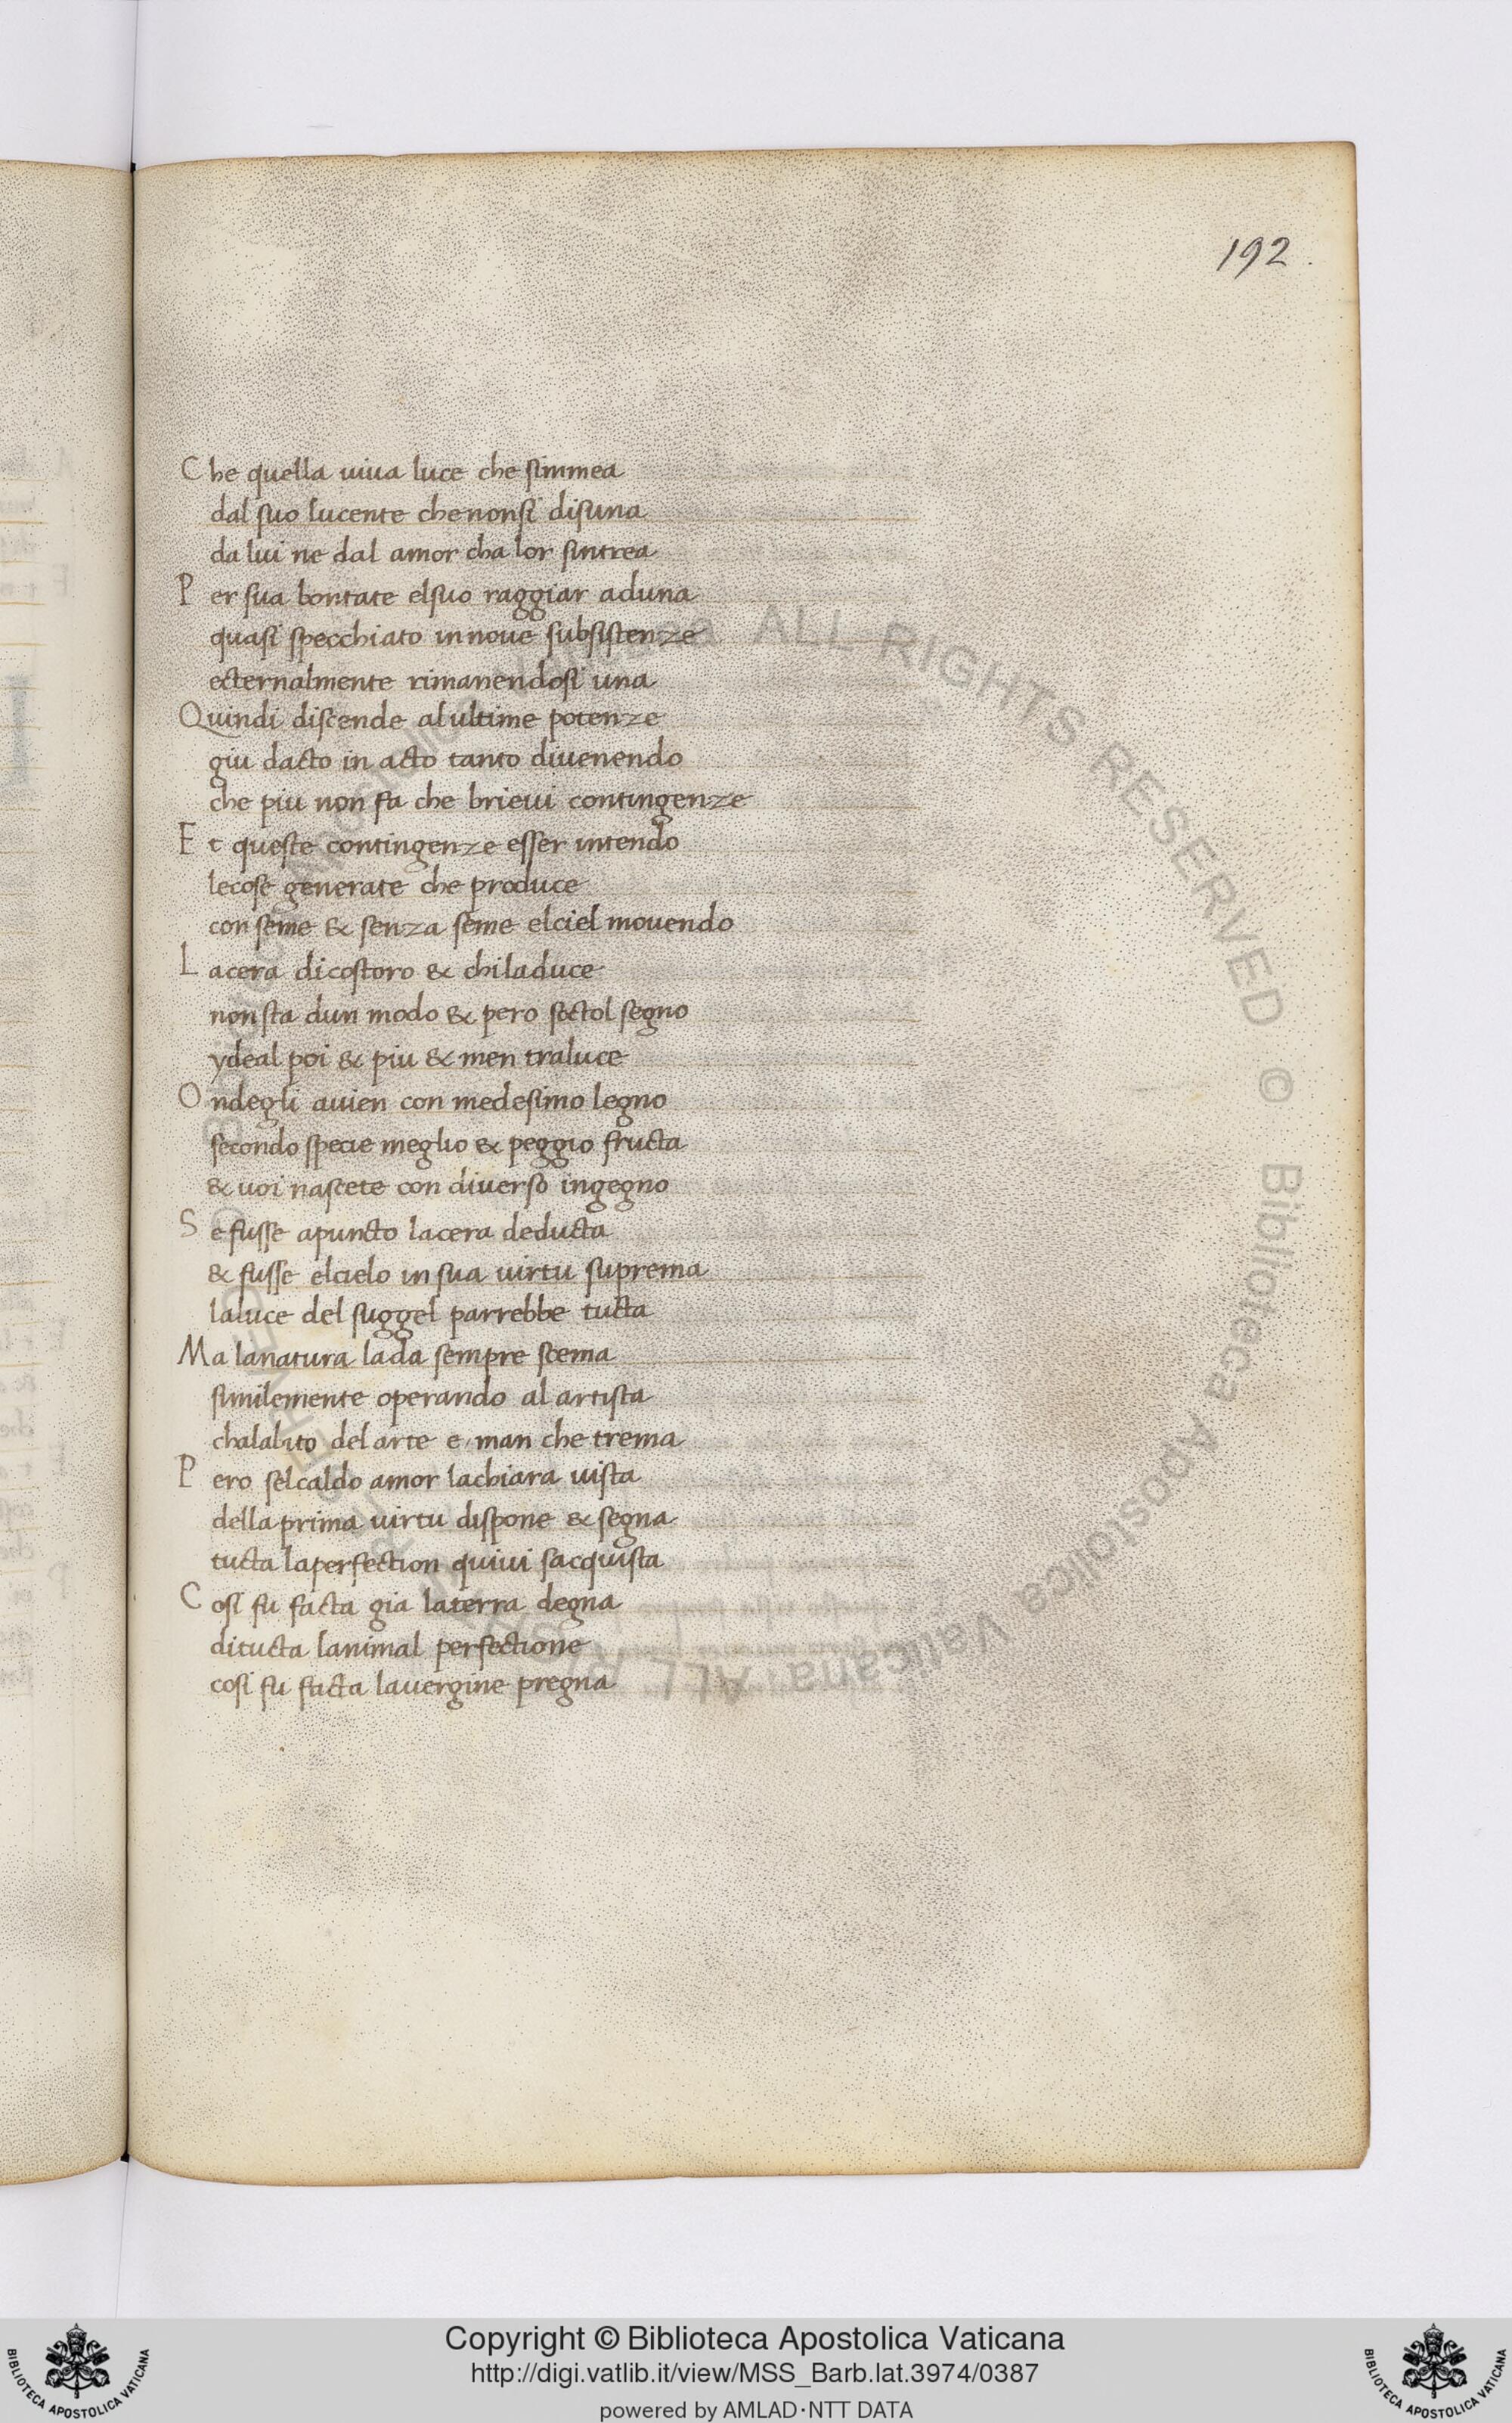 192
Che quella uiua luce che simmea
dal suo lucente che non si disuna
da lui ne dal amor cha lor sintrea
Per sua bontate elsuo raggiar aduna
quasi specchiato in noue subsistenze
ecternalmente rimanendosi una
Quindi discende al ultime potenze
giu dacto in acto tanto diuenendo
che piu non fa che brieui contingenze
Et queste contingenze esser intendo
lecose generate che produce
con seme & senza seme elciel mouendo
Lacera dicostoro & chi laduce
non sta dun modo & pero soctol segno
ydeal poi & piu & men traluce
Ondegli auien con medesimo legno
secondo specie meglio & peggio fructa
& uoi nascete con diuerso ingegno
Se fusse apuncto lacera deducta
& fusse elcielo in sua uirtu suprema
laluce del suggel parrebbe tucta
Ma lanatura lada sempre scema
similemente operando al artista
chalabito del arte e man che trema
Pero selcaldo amor lachiara uista
della prima uirtu dispone & segna
tucta laperfection quiui sacquista
Cosi fu facta gia laterra degna
ditucta lanimal perfectione
cosi fu facta lauergine pregna
ALL RIGHTS RESERVED © Biblioteca Apostolica Vaticana
Copyright © Biblioteca Apostolica Vaticana
http://digi.vatlib.it/view/MSS_Barb.lat.3974/0387
powered by AMLAD·NTT DATA
BIBLIOTECA APOSTOLICA VATICANA
BIBLIOTECA APOSTOLICA VATICANA